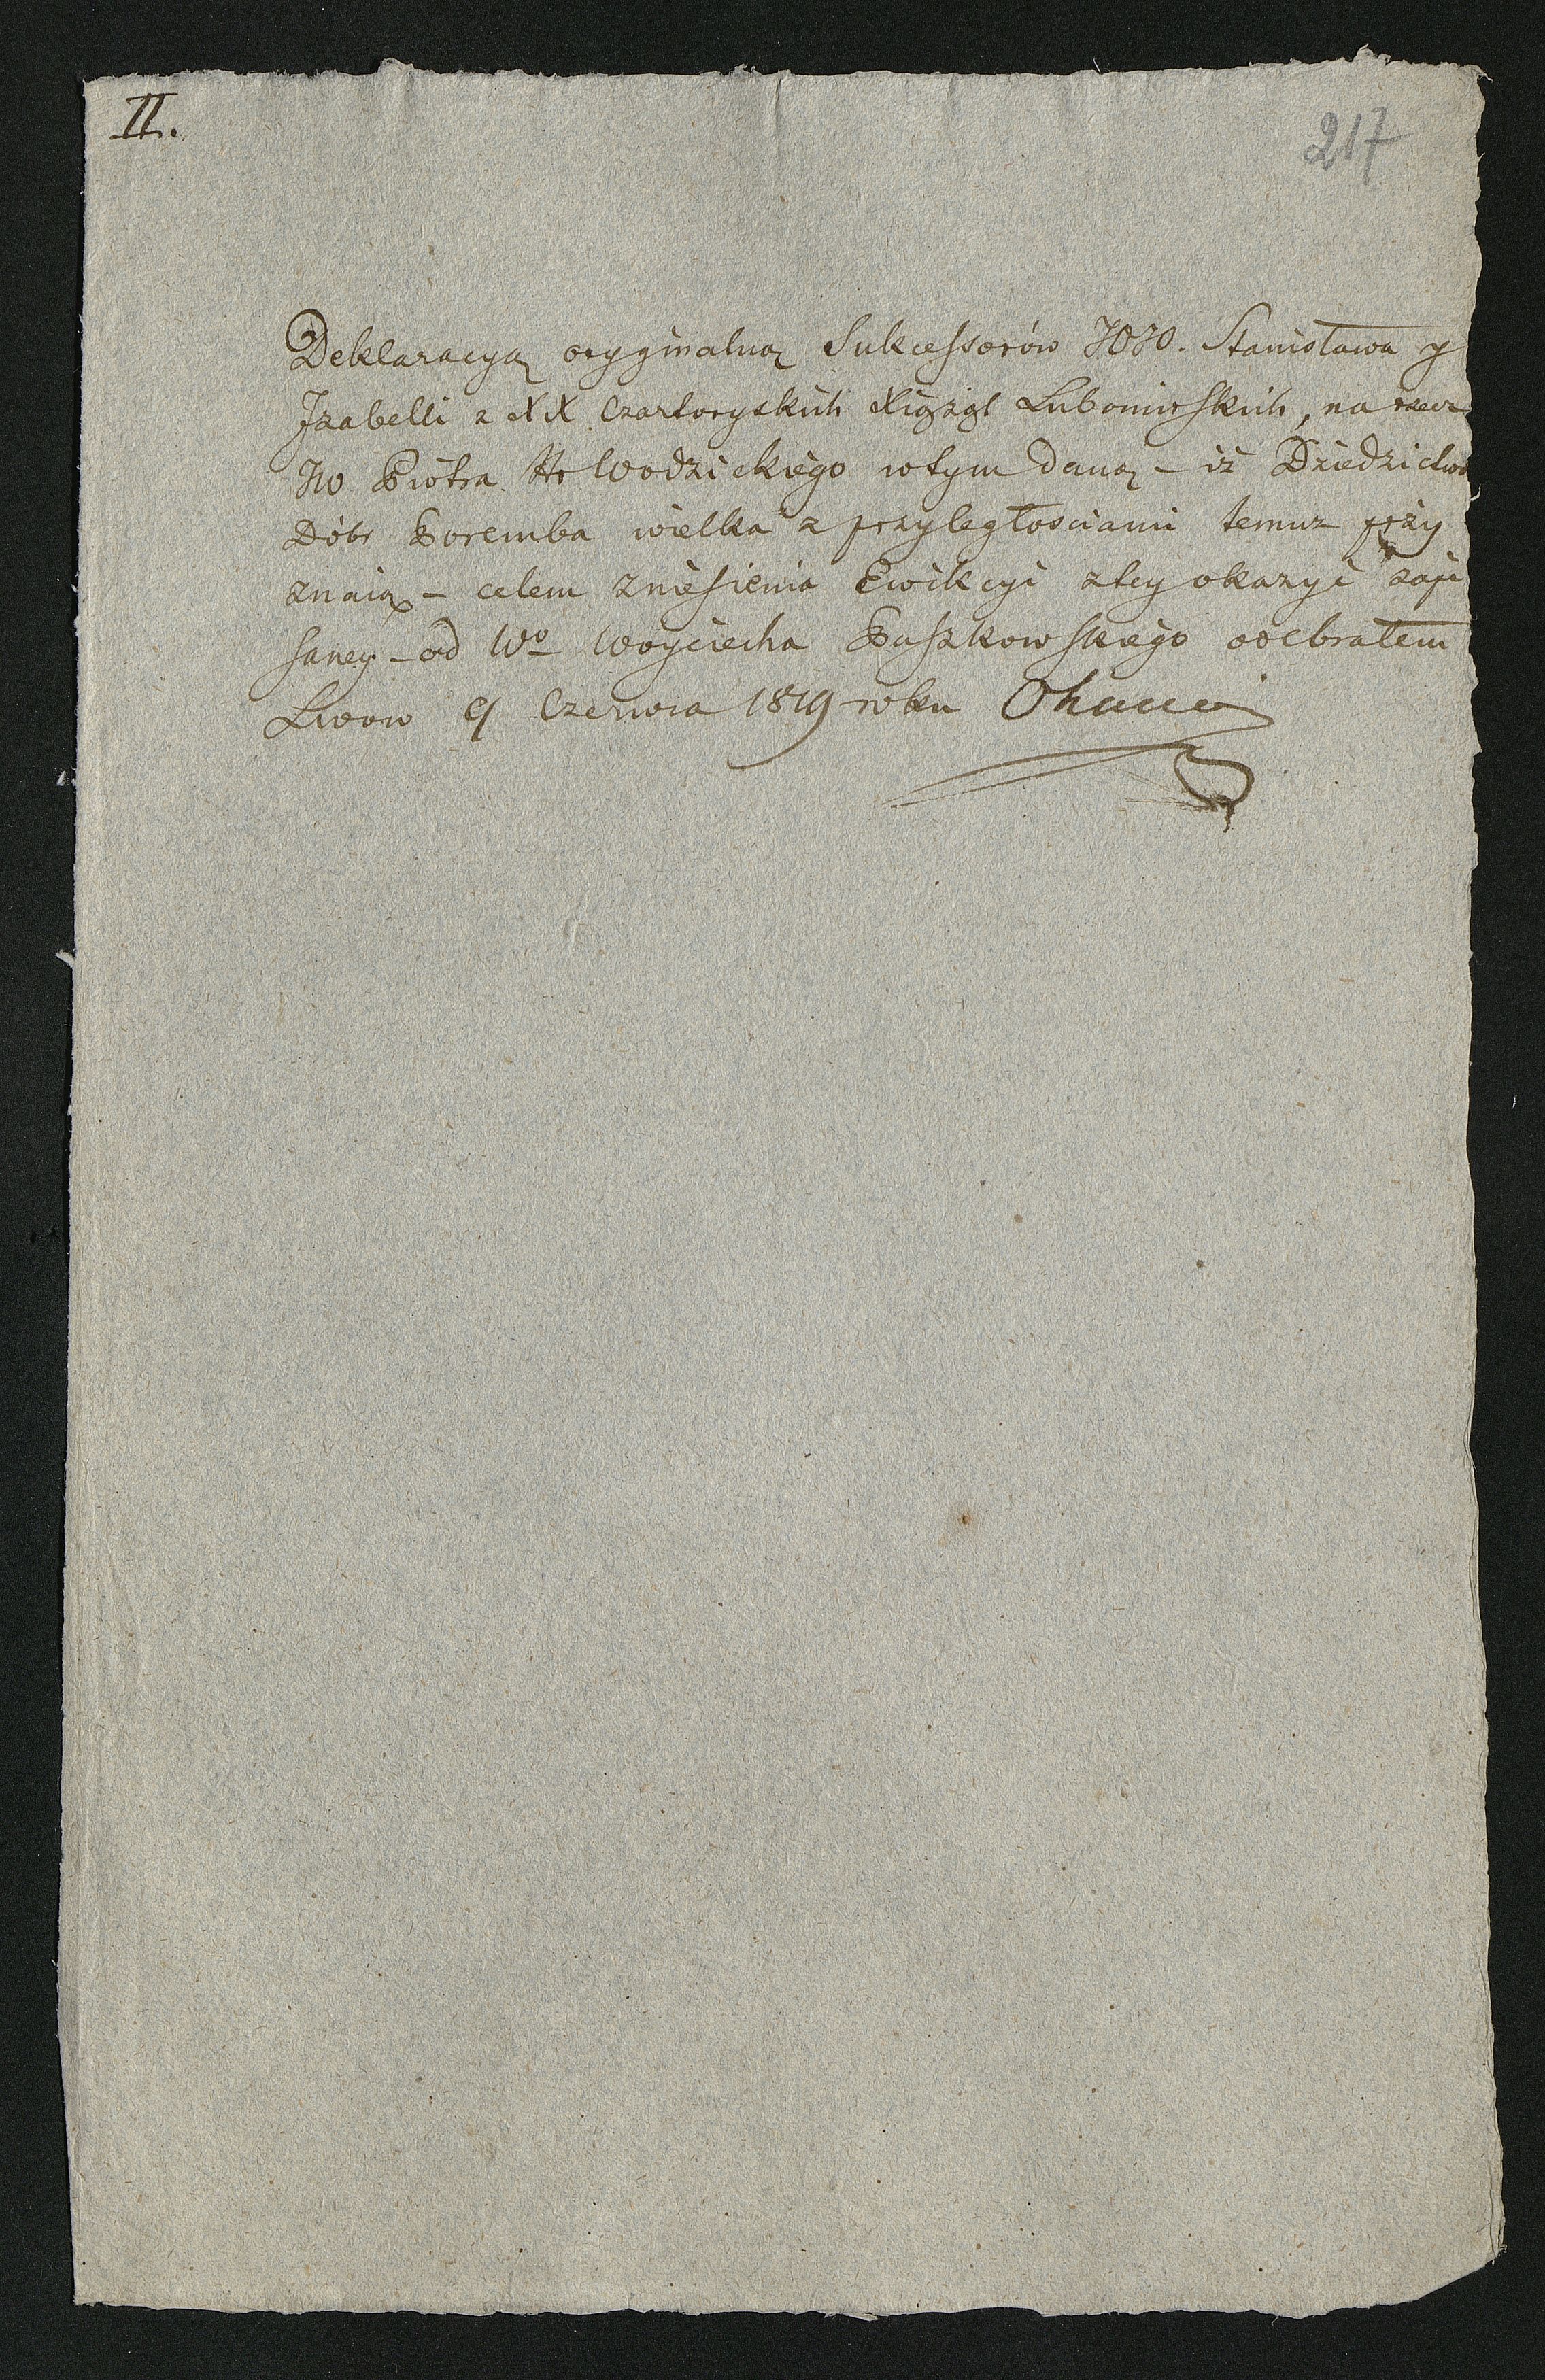 II.
217
Deklaracyą oryginalną Sukcessorów JOJO. Stanisława y
Izabelli z XX Czartoryskich Xiążąt Lubomirskich, na rzecz
JW Piotra Hr Wodzickiego wtym daną – iż Dziedzictwo
Dóbr Poremba wielka z przyległosciami temuz przy
znaią – celem zniesienia Ewikcyi ztey okazyi zapi
saney – od Wo Woyciecha Paszkowskiego odebrałem
Lwow 9 Czerwca 1819 roku